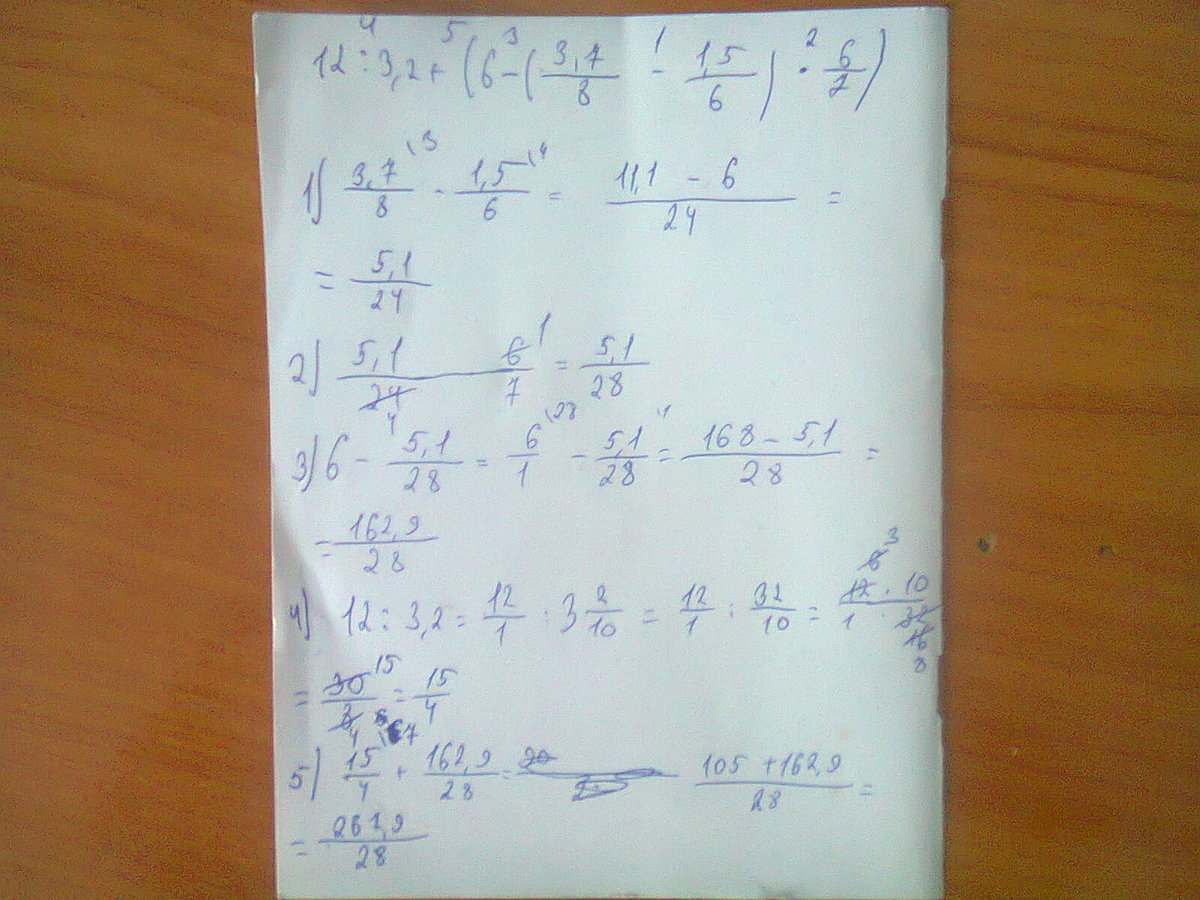 12 : 3,2 + (6 - (3,7/8 - 1,5/6) · 6/7)
1) 3,7/8 - 1,5/6 = 11,1 - 6/24 =
= 5,1/24
2) 5,1/24 6/7 = 5,1/28
3) 6 - 5,1/28 = 6/1 - 5,1/28 = 168 - 5,1/28 =
= 162,9/28
4) 12 : 3,2 = 12/1 : 3 2/10 = 12/1 : 32/10 = 12 · 10/1 · 32
= 30/8 = 15/4
5) 15/4 + 162,9/28 = 105 + 162,9/28 =
= 267,9/28